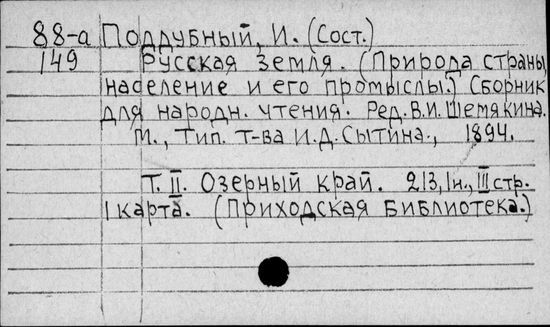 88-а Поддубный, И. (Сост.)
149 Русская Земля. (Природа страны,
население и его промыслы.) Сборник
для народн. чтения. Ред. В.И. Шемякина.
М., Тип. т-ва И.Д. Сытина., 1894.
Т. II. Озерный край. 213, 1н., III стр.
1 карта. (Приходская Библиотека.)